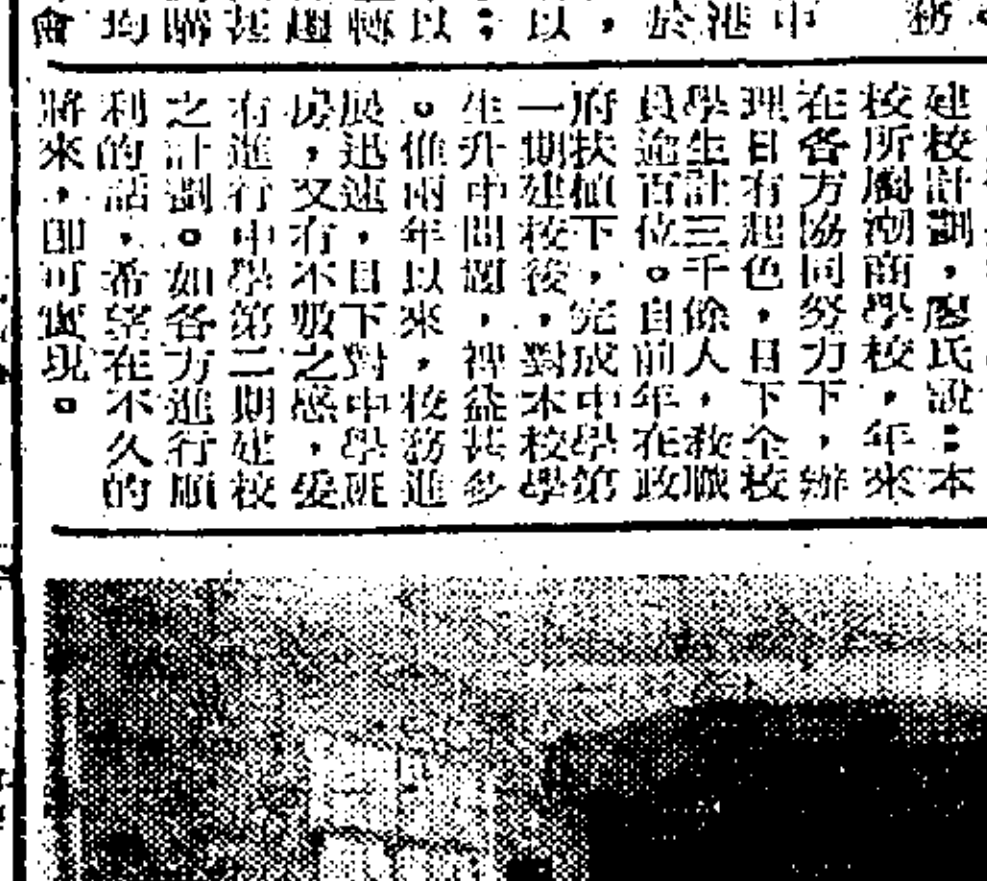 務
中
港
於
，
以
：
以
轉
趨
甚
購
均
會
建校計劃，廖氏說：本
校所屬潮商學校，年來
在各方協同努力下，辦
理日有起色，目下全校
學生計三千餘人，教職
員逾百位。自前年在政
府扶植下，完成中學第
一期建校後，對本校學
生升中問題，裨益甚多
。惟兩年以來，校務進
展迅速，目下對中學班
房，又有不敷之感，爰
有進行中學第二期建校
之計劃。如各方進行順
利的話，希望在不久的
將來，即可實現。